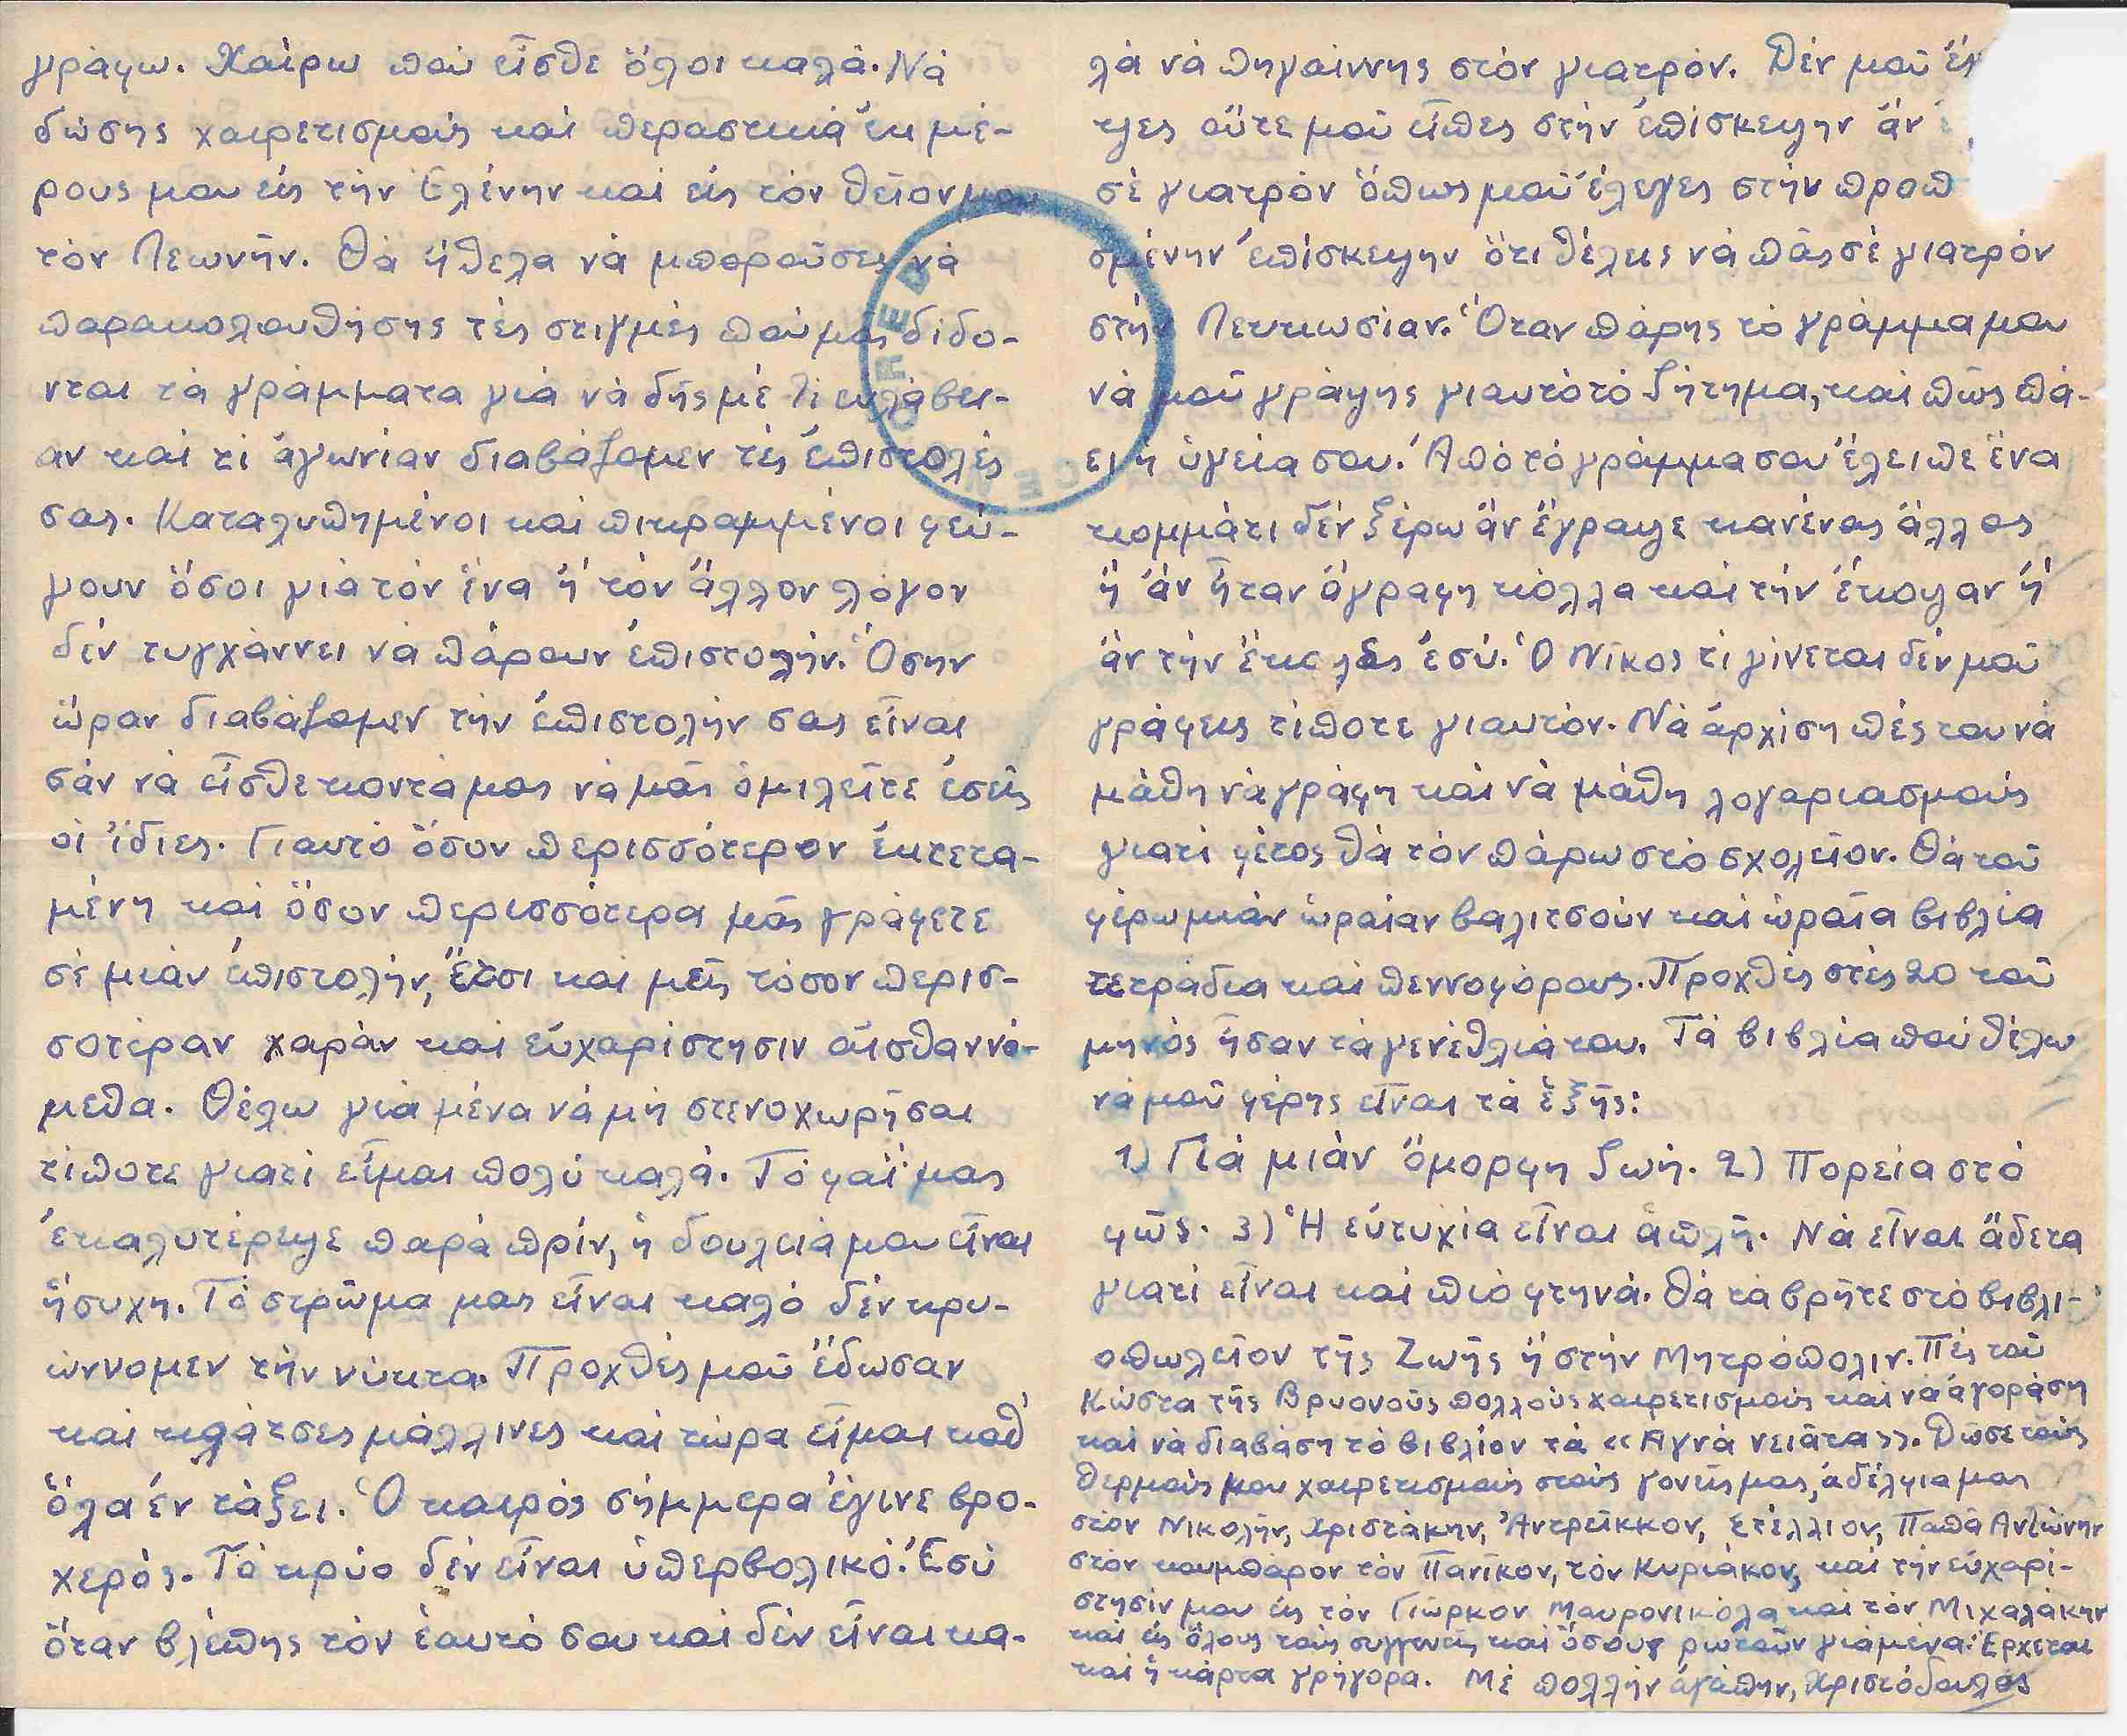 γράφω. Χαίρω πού εἶσθε ὅλοι καλά. Νά
δώσης χαιρετισμούς καί περαστικά ἐκ μέ-
ρους μου είς τήν Ἑλένην καί είς τόν θεῖον μου
τόν Λεωνῆν. Θά ἤθελα νά μποροῦσες νά
παρακολουθήσης τές στιγμές πού μᾶς δίδο-
νται τά γράμματα γιά νά δῆς μέ τί εὐλάβει-
αν καί τί ἀγωνίαν διαβάζομεν τές ἐπιστολές
σας. Καταλυπημένοι καί πικραμμένοι φεύ-
γουν ὅσοι γιά τόν ἕνα ἤ τόν ἄλλον λόγον
δέν τυγχάννει νά πάρουν ἐπιστολήν. Ὅσην
ὥραν διαβάζομεν τήν ἐπιστολήν σας εἶναι
σάν νά εἶσθε κοντά μας νά μᾶς ὁμιλεῖτε ἐσεῖς
οἱ ἴδιες. Γιαυτό ὅσον περισσότερον ἐκτετα-
μένη καί ὅσον περισσότερα μᾶς γράφετε
σέ μιάν ἐπιστολήν, ἔτσι καί μεῖς τόσον περισ-
σοτέραν χαράν καί εὐχαρίστησιν αἰσθαννό-
μεθα. Θέλω γιά μένα νά μή στενοχωρῆσαι
τίποτε γιατί εἶμαι πολύ καλά. Τό φαΐ μας
ἐκαλυτέρεψε παρά πρίν, ἡ δουλειά μου εἶναι
ἥσυχη. Τό στρῶμα μας εἶναι καλό δέν κρυ-
ώννομεν τήν νύκτα. Προχθές μοῦ ἔδωσαν
καί κλάτσες μάλλινες καί τώρα εἶμαι καθ'
ὅλα ἐν τάξει. Ὁ καιρός σήμμερα ἔγινε βρο-
χερός. Τό κρύο δέν εἶναι ὑπερβολικό. Ἐσύ
ὅταν βλέπης τόν ἑαυτό σου καί δέν εἶναι κα-
λά νά πηγαίννης στόν γιατρόν. Δέν μοῦ ἔγ
ψες οὔτε μοῦ εἶπες στήν ἐπίσκεψην ἄν
σέ γιατρόν ὅπως μοῦ ἔλεγες στήν προπ
σμένην ἐπίσκεψην ὅτι θέλεις νά πᾶς σέ γιατρόν
στήν Λευκωσίαν. Ὅταν πάρης τό γράμμα μου
νά μοῦ γράψης γιαυτό τό ζήτημα, καί πῶς πά-
ει ἡ ὑγεία σου. Ἀπό τό γράμμα σου ἔλειπε ἕνα
κομμάτι δέν ξέρω ἄν ἔγραψε κανένας ἄλλος
ἤ ἄν ἦταν ἄγραφη κόλλα καί τήν ἔκοψαν ἤ
ἄν τήν ἔκοψες ἐσύ. Ὁ Νῖκος τί γίνεται δέν μοῦ
γράφεις τίποτε γιαυτόν. Νά ἀρχίση πές του νά
μάθη νά γράφη καί νά μάθη λογαριασμούς
γιατί φέτος θά τόν πάρω στό σχολεῖον. Θά τοῦ
φέρω μιάν ὡραίαν βαλιτσούν καί ὡραῖα βιβλία
τετράδια καί πεννοφόρους. Προχθές στές 20 τοῦ
μηνός ἦσαν τά γενέθλιά του. Τά βιβλία πού θέλω
νά μοῦ φέρης εἶναι τά ἑξῆς:
1) Γιά μιάν ὄμορφη ζωή. 2) Πορεία στό
φῶς. 3) Ἡ εὐτυχία εἶναι ἁπλῆ. Νά εἶναι ἄδετα
γιατί εἶναι καί πιό φτηνά. Θά τά βρῆτε στό βιβλι-
οπωλεῖον τῆς Ζωῆς ἤ στήν Μητρόπολιν. Πές τοῦ
Κώστα τῆς Βρυονοῦς πολλούς χαιρετισμούς καί νά ἀγοράση
καί νά διαβάση τό βιβλίον τά «Αγνά νειᾶτα». Δῶσε τούς
θερμούς μου χαιρετισμούς στούς γονεῖς μας, ἀδέλφια μας
στόν Νικολῆν, Χριστάκην, Ἀντρεῖκκον, Στέλλιον, Παπᾶ Αντώνην
στόν κουμπάρον τόν Πανῖκον, τόν Κυριάκον, καί τήν εὐχαρί-
στησίν μου είς τόν Γιῶρκον Μαυρονικόλα καί τόν Μιχαλάκην
καί είς ὅλους τούς συγγενεῖς καί ὅσους ρωτοῦν γιά μένα. Ἔρχεται
καί ἡ κάρτα γρήγορα. Μέ πολλήν ἀγάπην, Χριστόδουλος